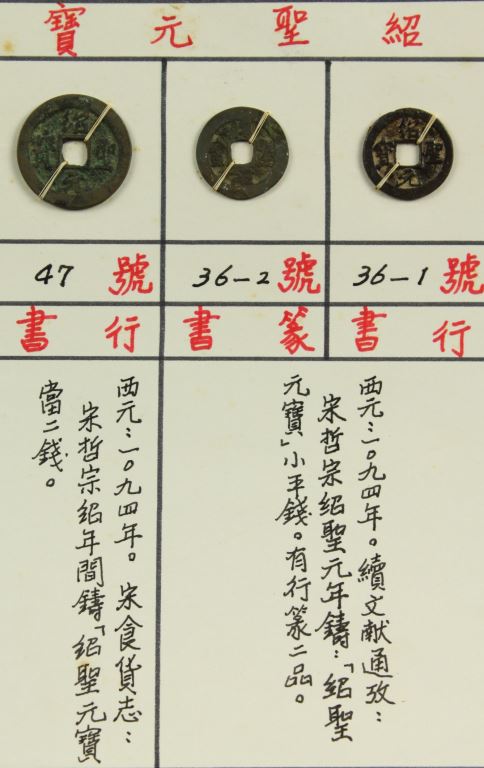 紹聖元寶
紹聖元寶
紹聖元寶
36-1 號
36-2 號
47 號
行書
篆書
行書
西元:一〇九四年。續文献通攷:
宋哲宗紹聖元年鑄:「紹聖
元寶」小平錢。有行篆二品。
西元:一〇九四年。宋食貨志:
宋哲宗紹年間鑄「紹聖元寶
當二錢。